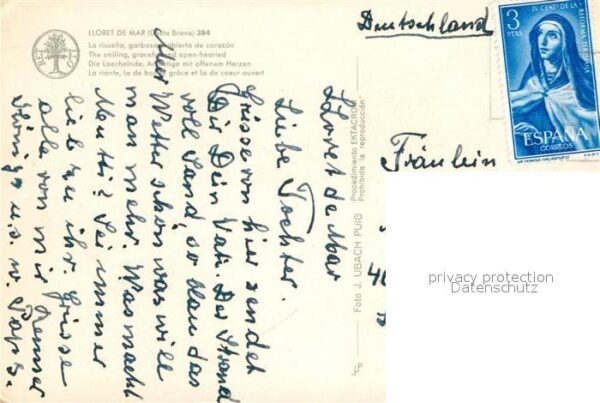 LLORET DE MAR (Costa Brava) 384
La risueña, garbosa, abierta de corazón
The smiling, graceful and open-hearied
Die Laechelnde, Anmutige mit offenem Herzen
La riante, la de bonne grâce et la de coeur ouvert
Deutschland
3
PTAS
IV CENT. DE LA REFORMA TERESIANA
ESPAÑA
CORREOS
Fräulein
LLoret de Mar
Liebe Tochter.
Grüsse von hier sendet
Dir Dein Vati. Der Strand
voll Sand, so blau das
Meer Wetter schön was will
man mehr. Was macht
Mutti? Sei immer
lieb zu ihr. Grüsse
alle von mir
u.s.w.
Procedimiento EKTACROM
Prohibida la reproducción
Foto J. UBACH PUIG
privacy protection
Datenschutz